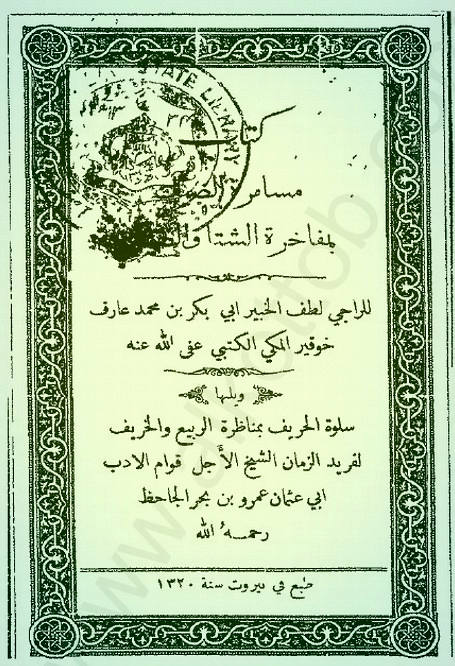 كتاب
مسامرة الضيف
بمفاخرة الشتا والصيف
للراجي لطف الخبير ابي بكر بن محمد عارف
خوقير المكي الكتبي عفى الله عنه
ويليها
سلوة الحريف بمناظرة الربيع والخريف
لفريد الزمان الشيخ الأجل قوام الادب
ابي عثمان عمرو بن بحر الجاحظ
رحمه الله
طبع في بيروت سنة ١٣٢٠
STATE LIBRARY
www.alkottob.com